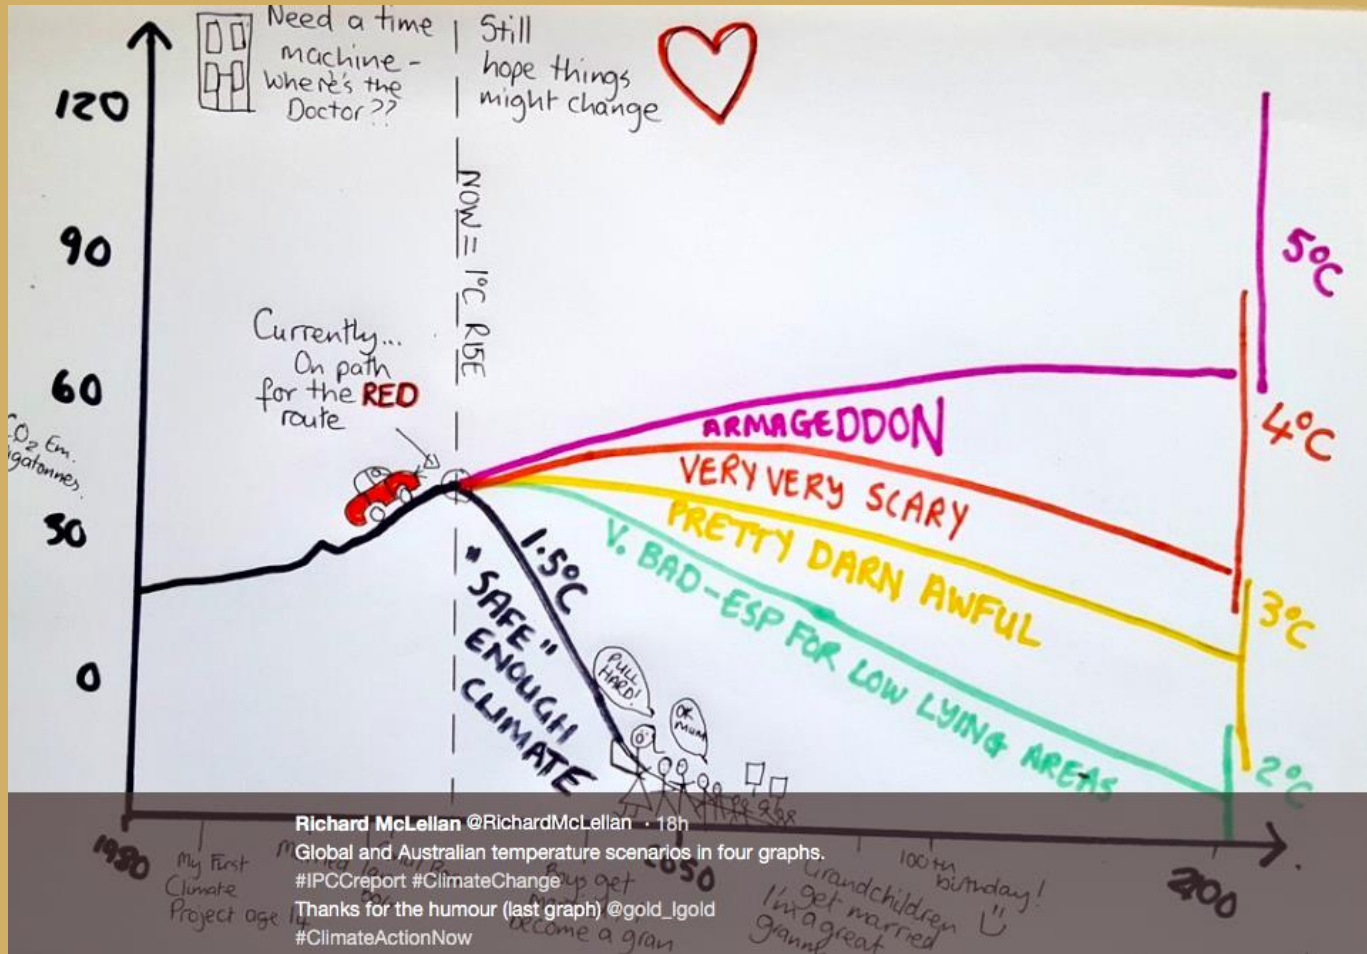 Need a time
machine -
where's the
Doctor??
Still
hope things
might change
120
90
60
30
0
NOW = 1°C RISE
Currently...
On path
for the RED
route
CO2 Em.
5°C
4°C
3°C
2°C
ARMAGEDDON
VERY VERY SCARY
PRETTY DARN AWFUL
V. BAD-ESP FOR LOW LYING AREAS
1.5°C
"SAFE"
ENOUGH
CLIMATE
PULL
HARD!
OK
MUM
1980
2050
2100
My First
Climate
Project age 14
Boys get
become a gran
Grandchildren
get married
I'm a great
granny
100th
birthday!
Richard McLellan @RichardMcLellan · 18h
Global and Australian temperature scenarios in four graphs.
#IPCCreport #ClimateChange
Thanks for the humour (last graph) @gold_lgold
#ClimateActionNow